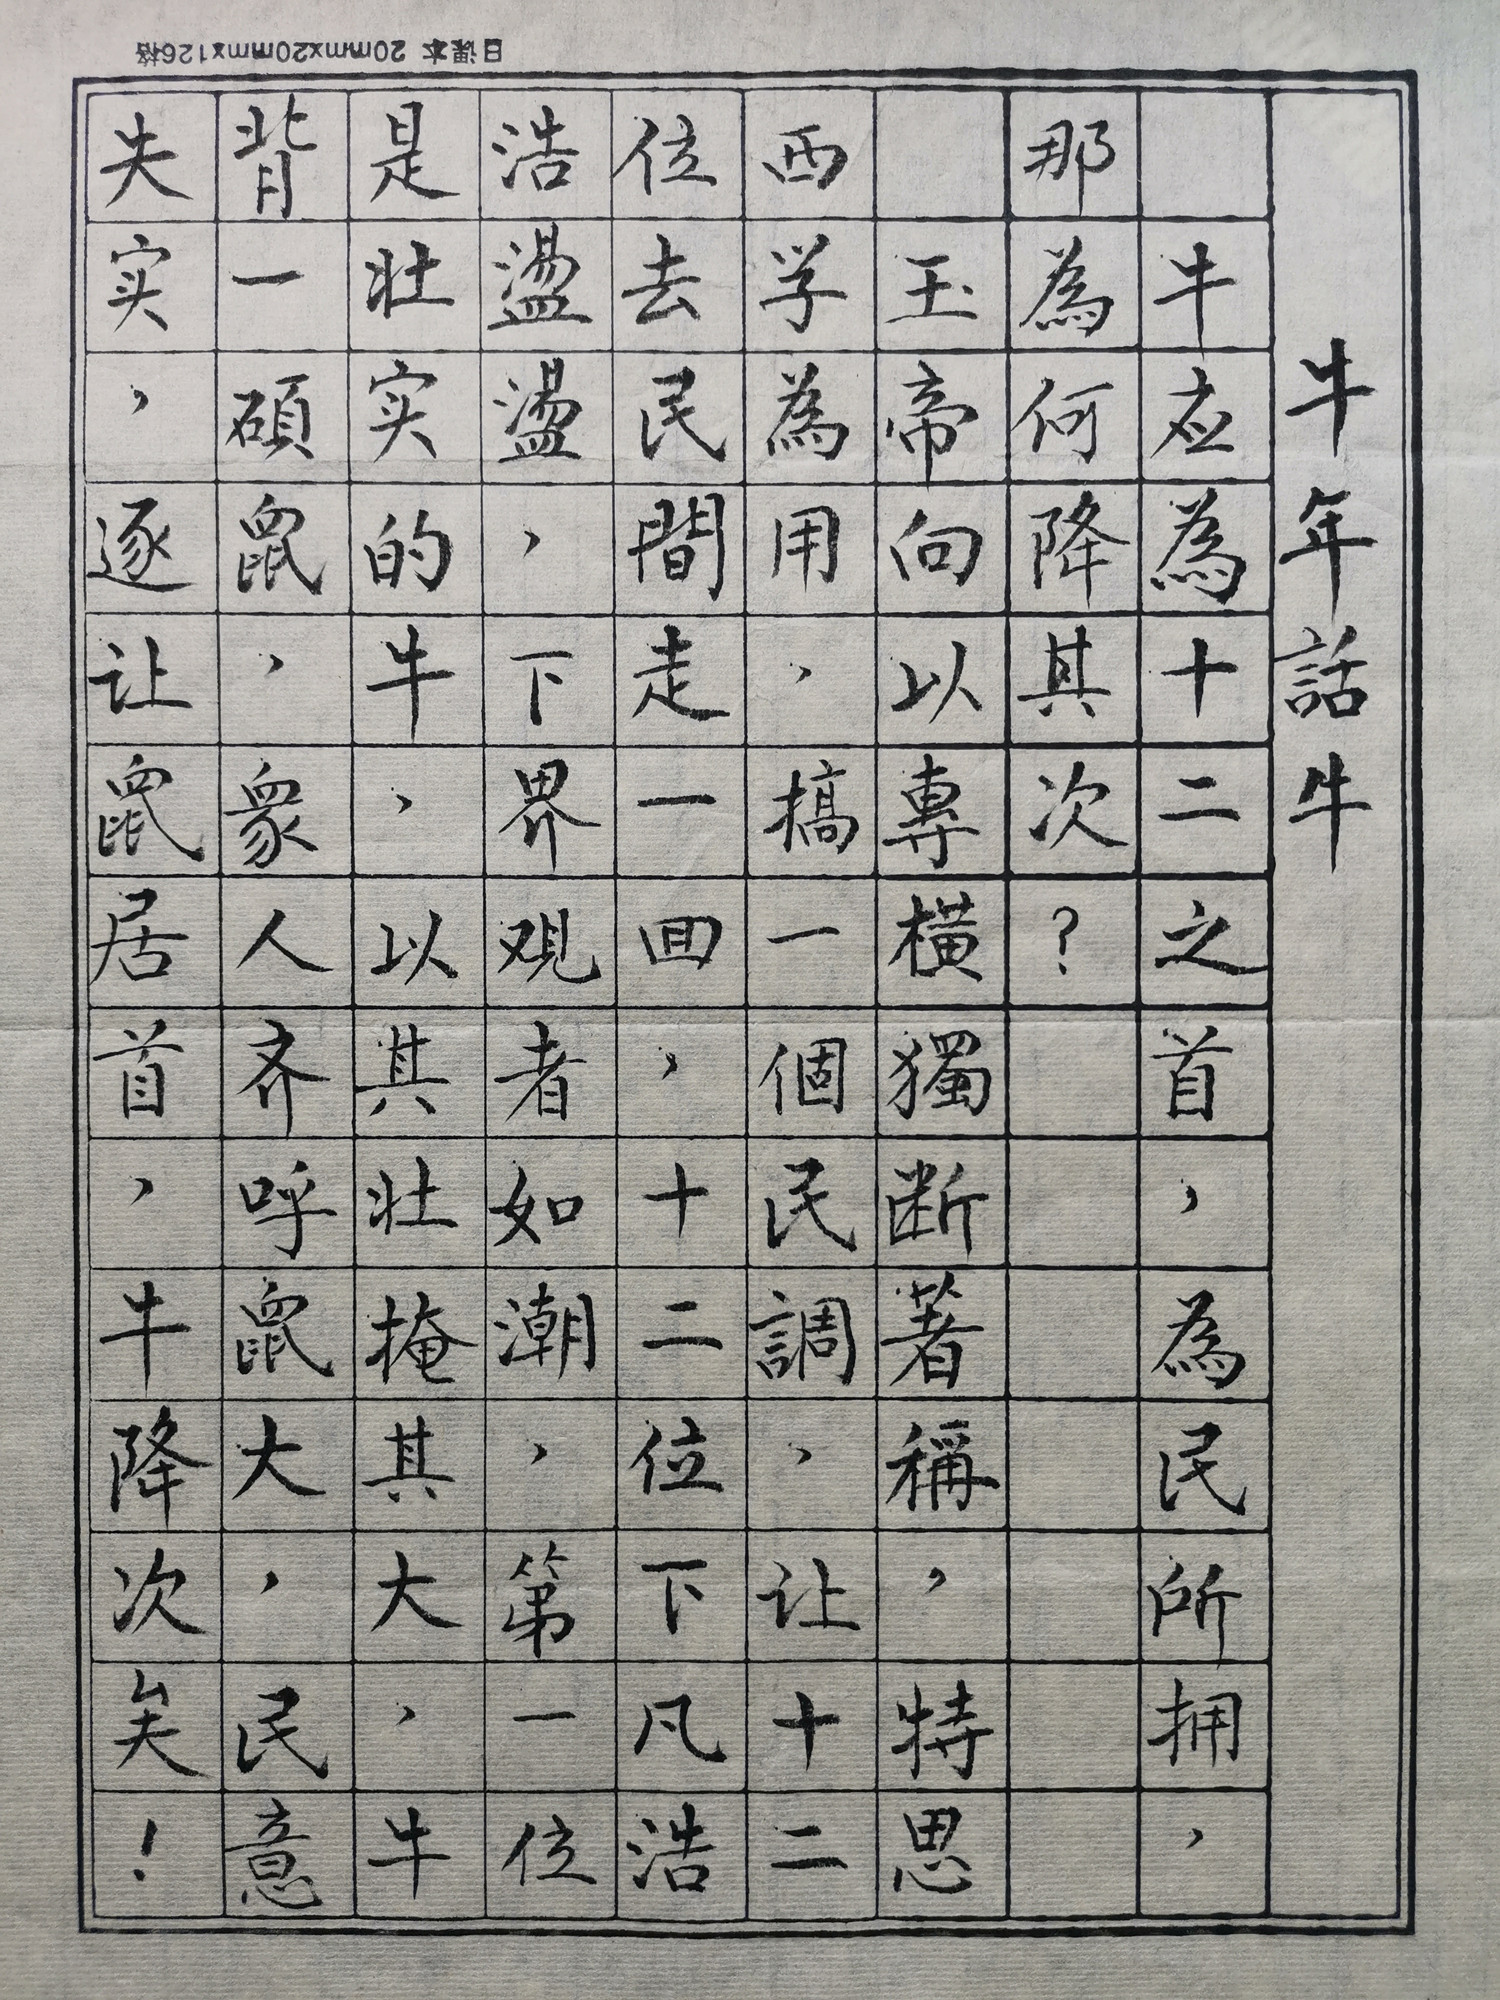 日课本 20mmx20mmx126格
牛年話牛
牛应為十二之首，為民所拥，
那為何降其次？
玉帝向以專橫獨断著稱，特思
西学為用，搞一個民調，让十二
位去民間走一回，十二位下凡浩
浩盪盪，下界观者如潮，第一位
是壮实的牛，以其壮掩其大，牛
背一碩鼠，衆人齐呼鼠大，民意
失实，逐让鼠居首，牛降次矣！